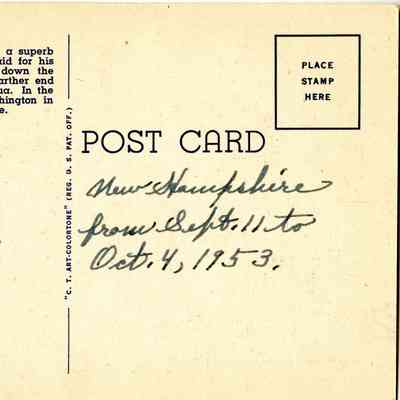 a superb
aid for his
down the
arther end
ua. In the
hington in
e.
"C. T. ART-COLORTONE" (REG. U. S. PAT. OFF.)
PLACE
STAMP
HERE
POST CARD
New Hampshire
from Sept. 11 to
Oct. 4, 1953.